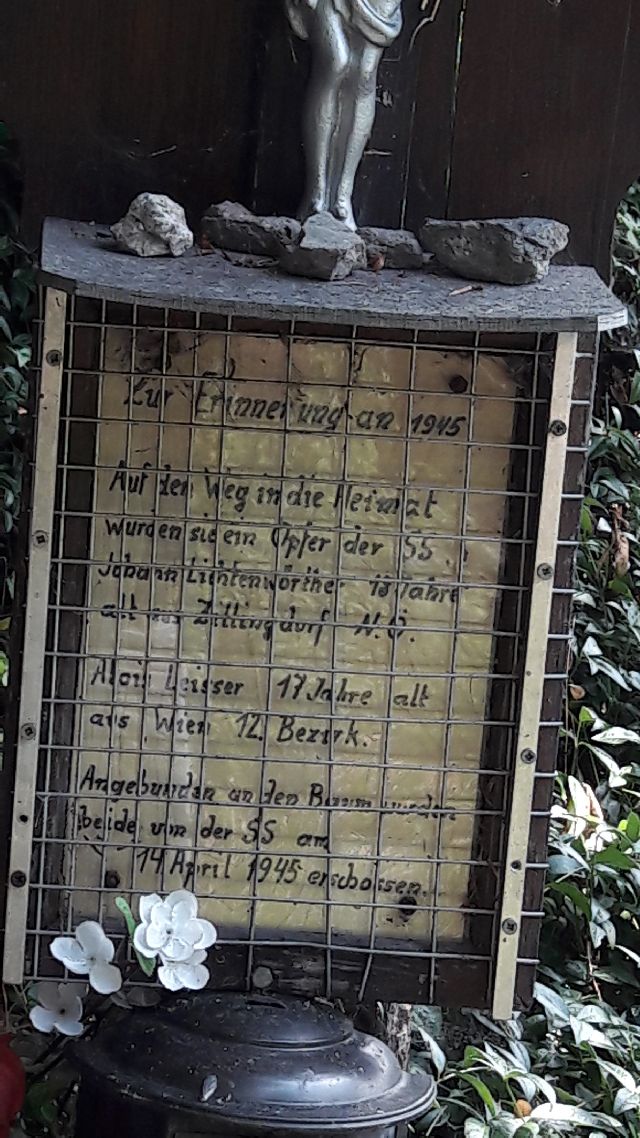 Zur Erinnerung an 1945
Auf den Weg in die Heimat
wurden sie ein Opfer der SS
Johann Lichtenwörther Jahre
alt aus Zillingdorf N.Ö.
Alois Leisser 17 Jahre alt
aus Wien 12. Bezirk.
Angebunden an den Baum wurden
beide von der SS am
14 April 1945 erschossen.